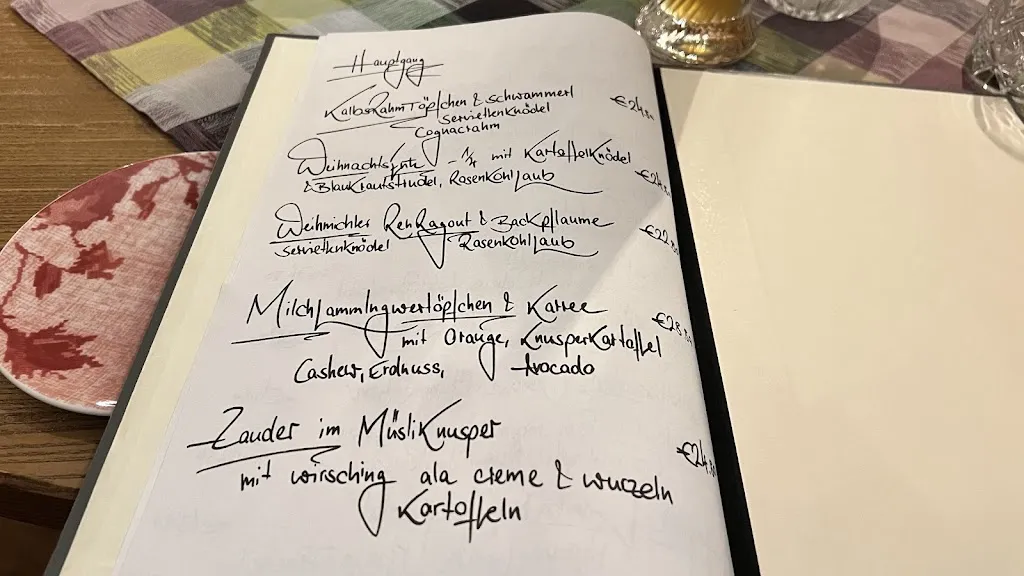 Hauptgang
KalbsRahmTöpfchen & schwammerl €24.80
serviettenknödel
Cognacrahm
Weihnachtsente - 1/4 mit Kartoffelknödel
& Blaukrautstrudel, Rosenkohllaub €24.
Weihnichtler RehRagout & Backpflaume €22.
serviettenknödel Rosenkohllaub
MilchlammIngwertöpfchen & Karree €28.
mit Orange, KnusperKartoffel
Cashew, Erdnuss, Avocado
Zander im MüsliKnusper
mit wirsching ala creme & wurzeln €24.
Kartoffeln